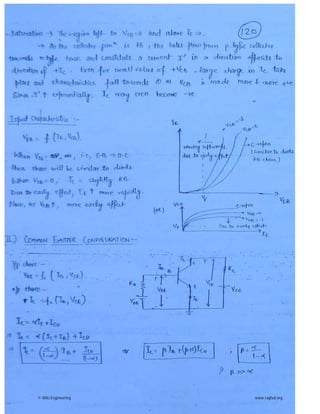 (120)
- Saturation → The region left to VCB=0 and above Ic=0.
→ As the collector junⁿ is FB; the holes flow from p type collector
towards n type base and constitute a current I' in a direction opposite to
direction of +Ic. Even for small value of +VCB, large change in Ic take
place and characteristics fall towards 0 as VCB is made more & more +ve.
Since I' ↑ exponentially, Ic may even become -ve.
Input Characteristics :-
VEB = f (IE, VCB).
When VCB = ∞, i.e, C-B → O.C.
then there will be similar to diode.
When VCB = 0, Ic = slightly RB.
Due to early effect, IE ↑ more rapidly.
Now, as VCB ↑, more early effect.
IE
moving upwards
due to early effect
C-open
(similar to diode
FB char.)
Vr
VEB
(or)
VEB
C-open
VCB=0
Due to early effect
IE
II.) COMMON EMITTER CONFIGURATION :-
i/p char:-
VBE = f1 (IB, VCE).
o/p char:-
Ic = f2 (IB, VCE)
Ic = αIE + Ico
⇒ Ic = α(Ic + IB) + Ico
⇒ Ic = (α/1-α) IB + Ico/(1-α)
or Ic = β IB + (β+1) Ico ; β = α/1-α
β >> α
IB
B
VBE
VBB
Ic
C
E
VCE
RL
VCC
© Wiki Engineering
www.raghul.org